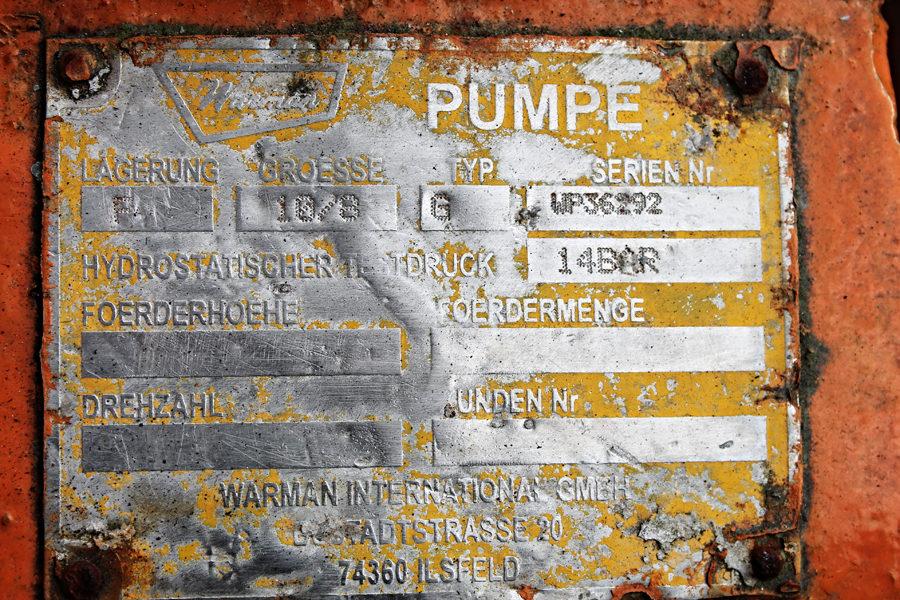 Warman
PUMPE
LAGERUNG GROESSE TYP SERIEN Nr
10/8 G WP36292
HYDROSTATISCHER TESTDRUCK 14BAR
FOERDERHOEHE FOERDERMENGE
DREHZAHL UNDEN Nr
WARMAN INTERNATIONAL GMBH
20
74360 ILSFELD